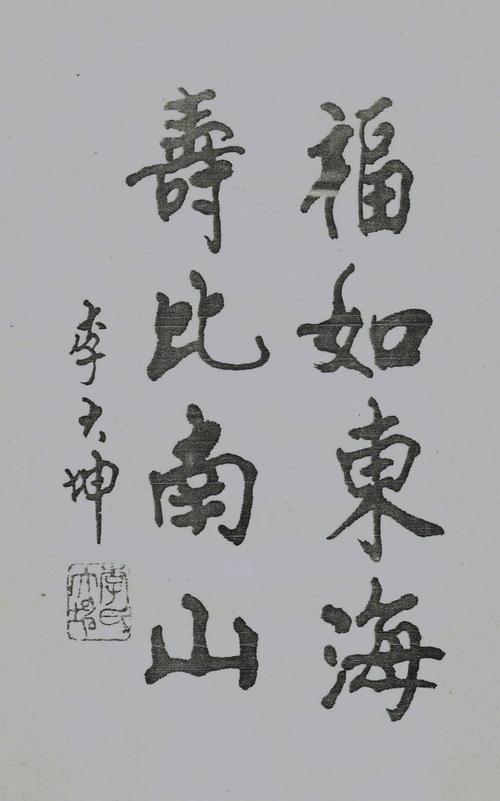 福如東海
壽比南山
李大坤